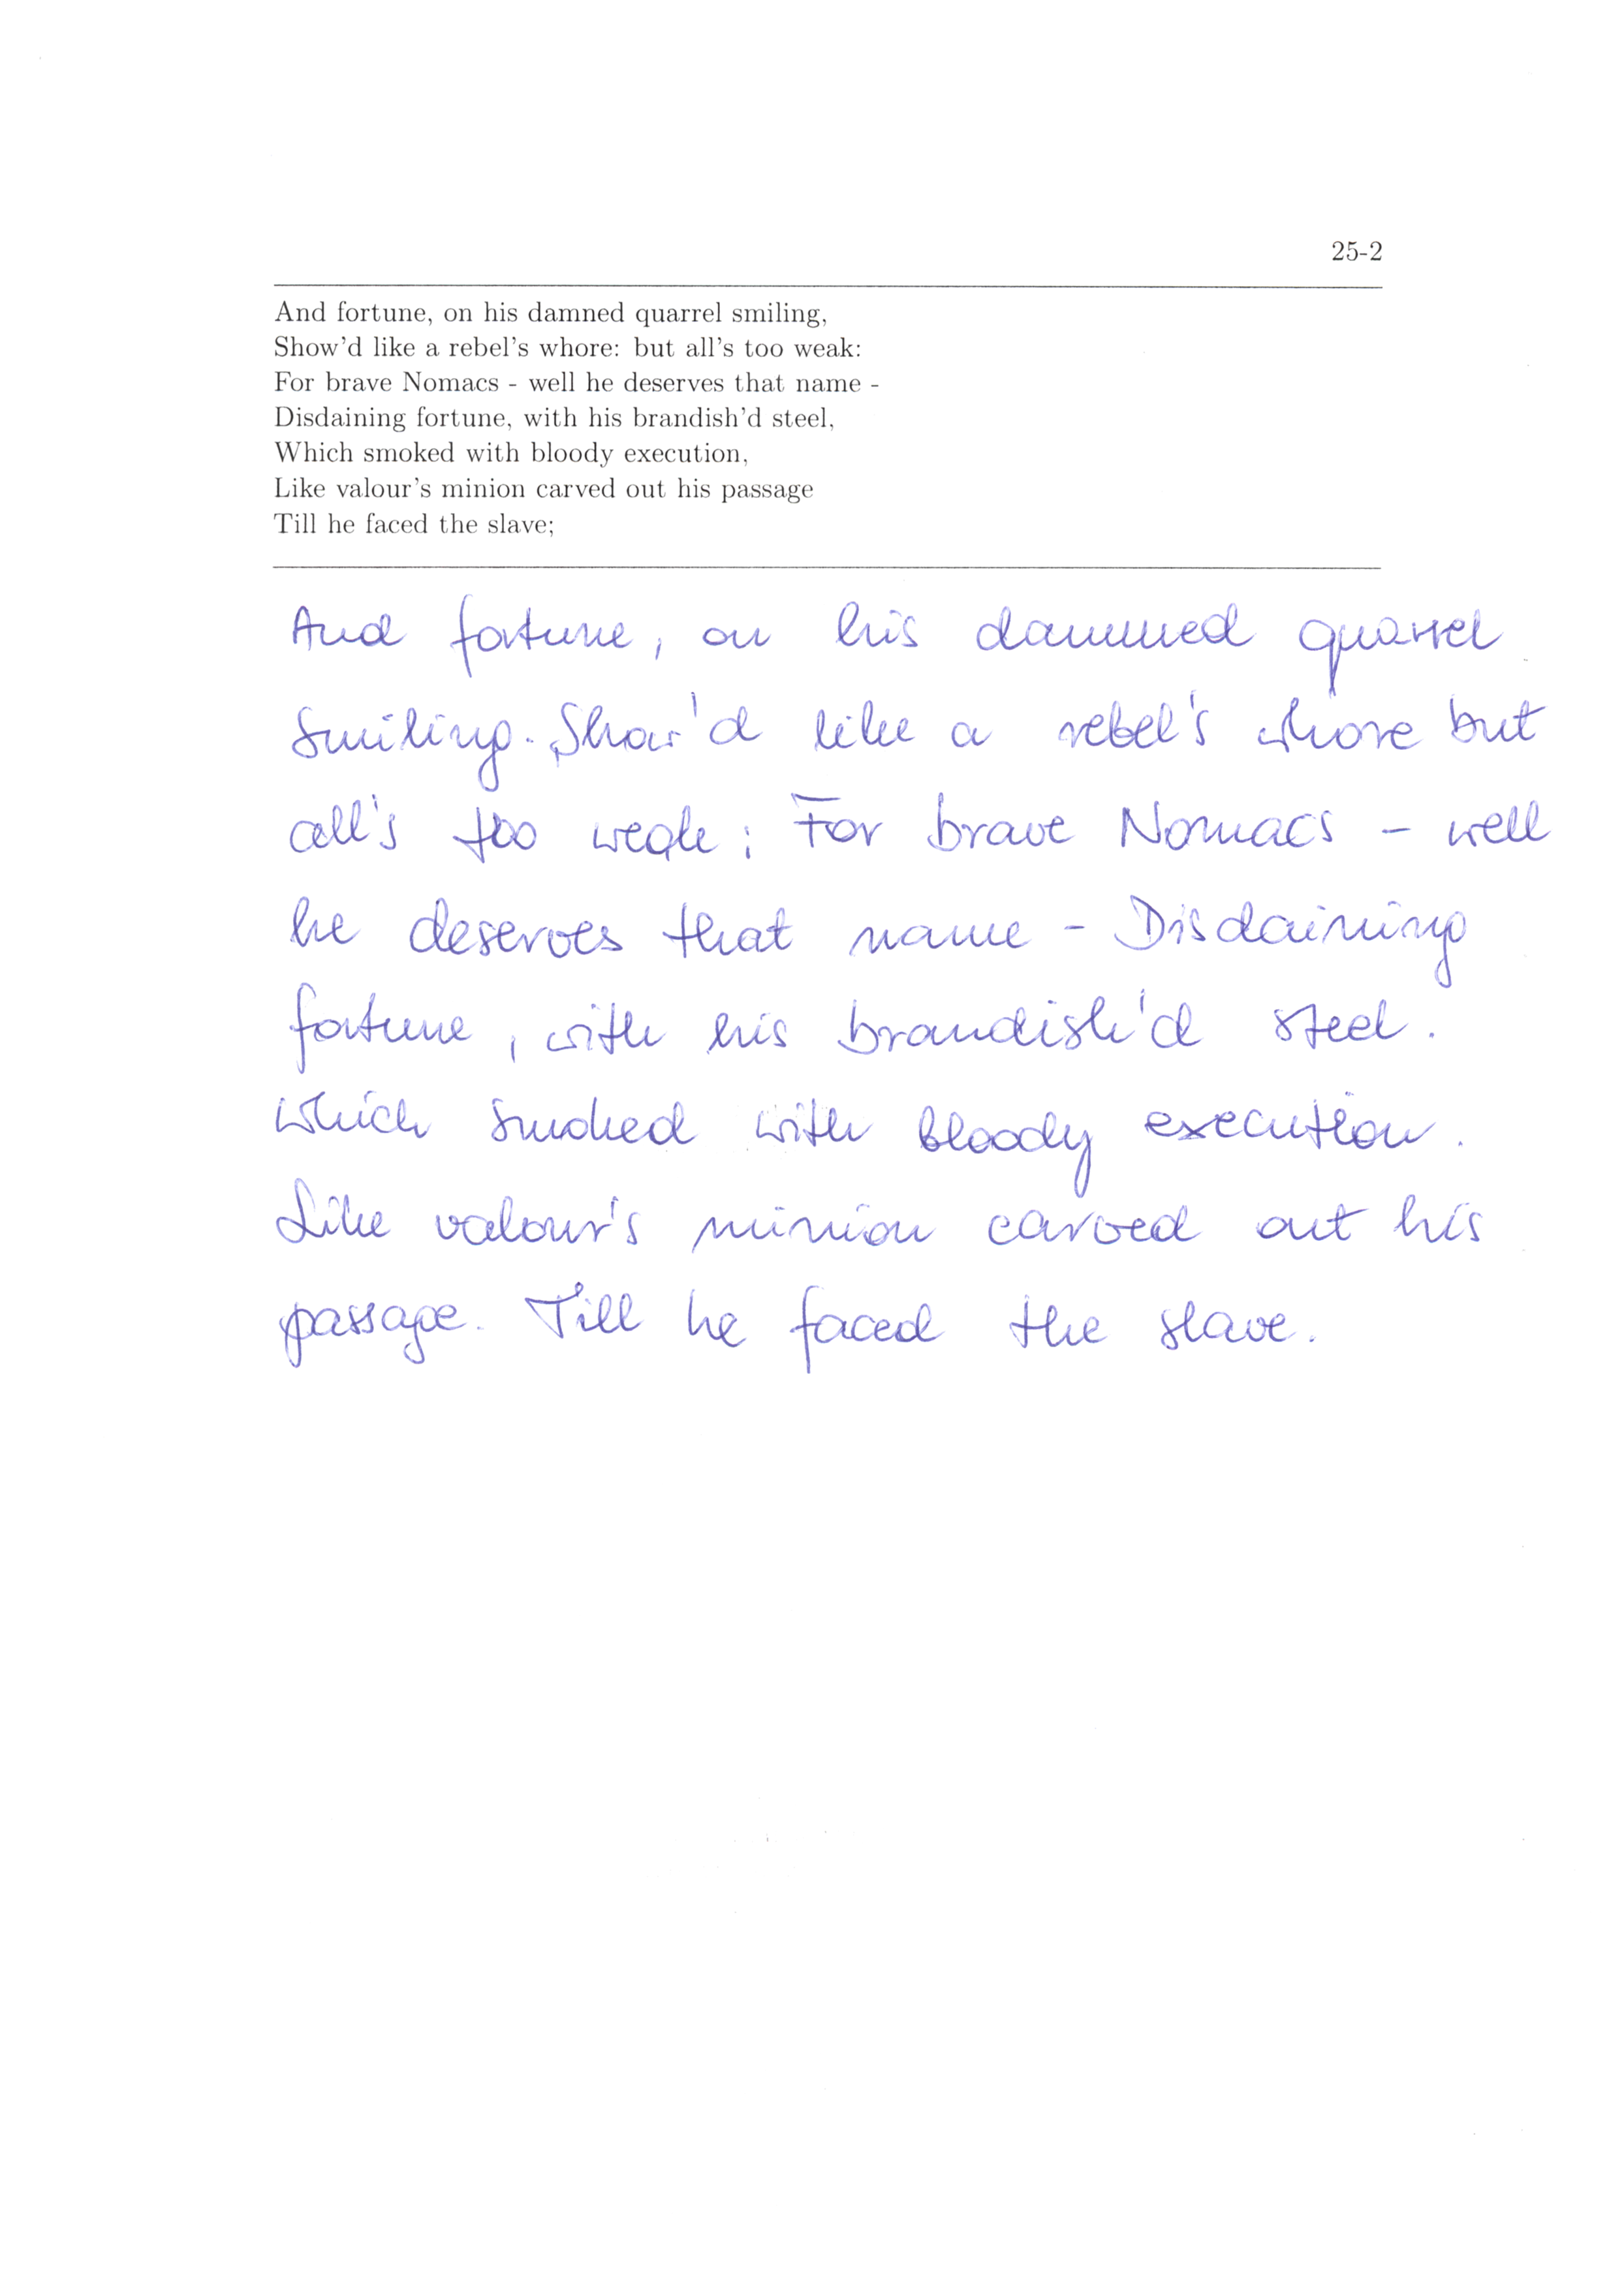 25-2
And fortune, on his damned quarrel smiling,
Show'd like a rebel's whore: but all's too weak:
For brave Nomacs - well he deserves that name -
Disdaining fortune, with his brandish'd steel,
Which smoked with bloody execution,
Like valour's minion carved out his passage
Till he faced the slave;
And fortune, on his dammed quarrel
smiling. Show'd like a rebel's whore but
all's too weak : For brave Nomacs - well
he deserves that name - Disdaining
fortune, with his brandish'd steel.
Which smoked with bloody execution.
Like valour's minion carved out his
passage. Till he faced the slave.